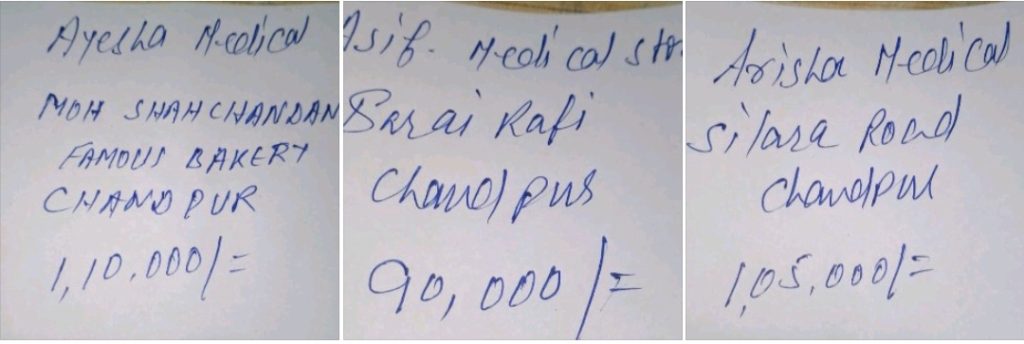 Ayesha Medical
MOH SHAH CHANDAN
FAMOUS BAKERY
CHANDPUR
1,10,000/=
Asif. Medical sto
Sarai Rafi
Chandpur
90,000/=
Arisha Medical
Silara Road
Chandpur
1,05,000/=